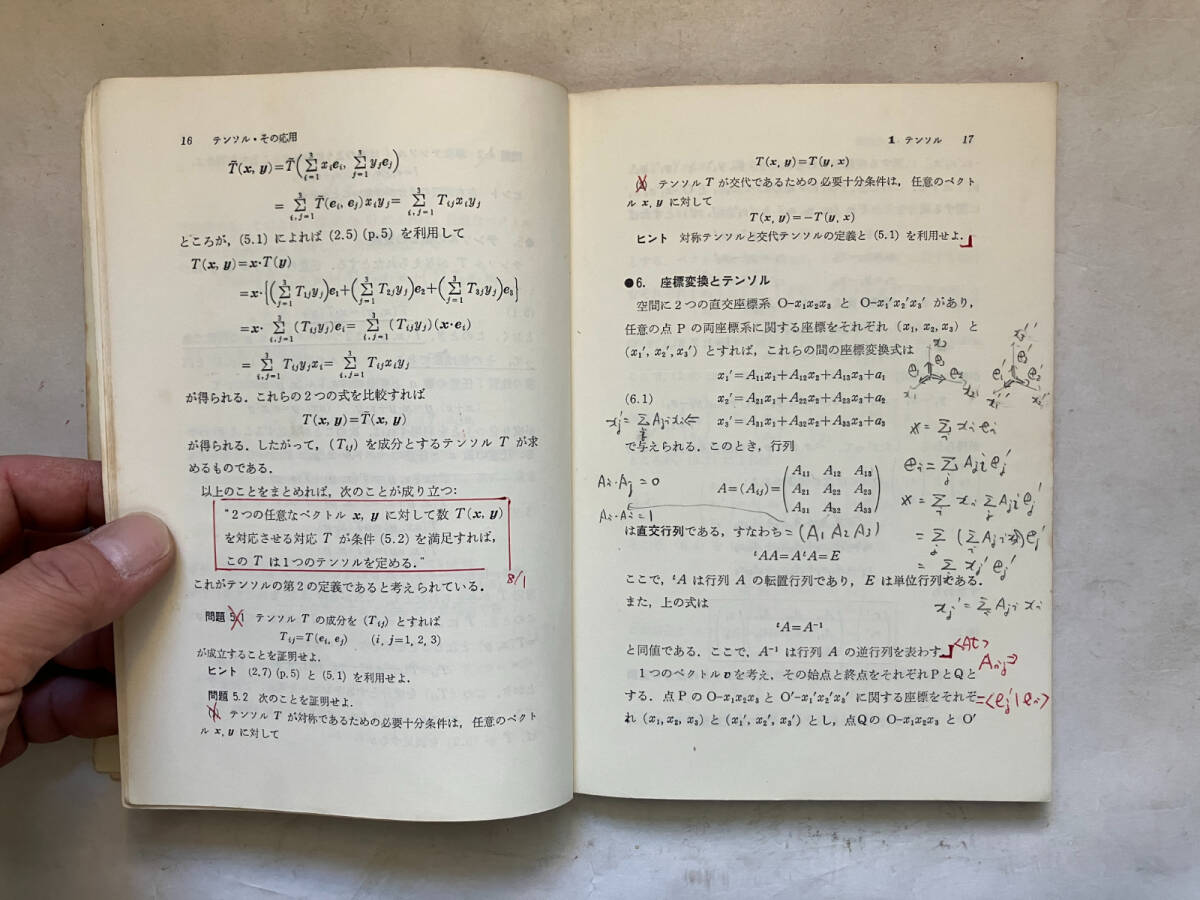 16 テンソル・その応用
T̄(x, y)=T̄(∑_{i=1}^{3} x_i e_i, ∑_{j=1}^{3} y_j e_j)
= ∑_{i,j=1}^{3} T̄(e_i, e_j) x_i y_j = ∑_{i,j=1}^{3} T_{ij} x_i y_j
ところが，(5.1) によれば (2.5) (p.5) を利用して
T(x, y)=x·T(y)
=x·{(∑_{j=1}^{3} T_{1j}y_j)e_1+(∑_{j=1}^{3} T_{2j}y_j)e_2+(∑_{j=1}^{3} T_{3j}y_j)e_3}
=x· ∑_{i,j=1}^{3} (T_{ij}y_j)e_i= ∑_{i,j=1}^{3} (T_{ij}y_j)(x·e_i)
= ∑_{i,j=1}^{3} T_{ij}y_jx_i= ∑_{i,j=1}^{3} T_{ij}x_iy_j
が得られる．これらの2つの式を比較すれば
T(x, y)=T̄(x, y)
が得られる．したがって，(T_{ij}) を成分とするテンソル T が求
めるものである．
以上のことをまとめれば，次のことが成り立つ:
"2つの任意なベクトル x, y に対して数 T(x, y)
を対応させる対応 T が条件 (5.2) を満足すれば，
この T は1つのテンソルを定める．"
8/1
これがテンソルの第2の定義であると考えられている．
問題 5.1 テンソル T の成分を (T_{ij}) とすれば
T_{ij}=T(e_i, e_j) (i, j=1, 2, 3)
が成立することを証明せよ．
ヒント (2.7) (p.5) と (5.1) を利用せよ．
問題 5.2 次のことを証明せよ．
テンソル T が対称であるための必要十分条件は，任意のベクト
ル x, y に対して
1. テンソル 17
T(x, y)=T(y, x)
テンソル T が交代であるための必要十分条件は，任意のベクト
ル x, y に対して
T(x, y)=−T(y, x)
ヒント 対称テンソルと交代テンソルの定義と (5.1) を利用せよ．
●6. 座標変換とテンソル
空間に2つの直交座標系 O−x_1x_2x_3 と O−x_1′x_2′x_3′ があり，
任意の点 P の両座標系に関する座標をそれぞれ (x_1, x_2, x_3) と
(x_1′, x_2′, x_3′) とすれば，これらの間の座標変換式は
x_1′=A_{11}x_1+A_{12}x_2+A_{13}x_3+a_1
(6.1) x_2′=A_{21}x_1+A_{22}x_2+A_{23}x_3+a_2
x_3′=A_{31}x_1+A_{32}x_2+A_{33}x_3+a_3
x_j′=∑A_{ji}x_i⇐
で与えられる．このとき，行列
A_i·A_j=0
A_i·A_i=1
A=(A_{ij})=(A_{11} A_{12} A_{13}
A_{21} A_{22} A_{23}
A_{31} A_{32} A_{33})
は直交行列である，すなわち=(A_1 A_2 A_3)
ᵗAA=AᵗA=E
ここで，ᵗA は行列 A の転置行列であり，E は単位行列である．
また，上の式は
ᵗA=A⁻¹
と同値である．ここで，A⁻¹ は行列 A の逆行列を表わす．
1つのベクトル v を考え，その始点と終点をそれぞれ P と Q と
する．点 P の O−x_1x_2x_3 と O′−x_1′x_2′x_3′ に関する座標をそれぞ
れ (x_1, x_2, x_3) と (x_1′, x_2′, x_3′) とし，点 Q の O−x_1x_2x_3 と O′
x=∑x_i e_i
e_i=∑_j A_{ji} e_j′
x=∑_i x_i ∑_j A_{ji} e_j′
=∑_j (∑_i A_{ji} x_i) e_j′
=∑_j x_j′ e_j′
x_j′=∑_i A_{ji} x_i
=⟨e_j′|e_i⟩